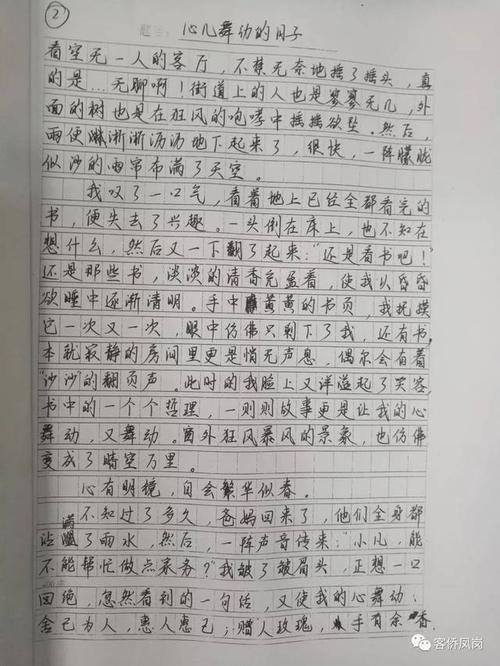 ②
心儿舞动的日子
看空无一人的客厅，不禁无奈地摇了摇头，真
的是…无聊啊！街道上的人也是寥寥无几，外
面的树也是在狂风的咆哮中摇摇欲坠。然后，
雨便淋淅淅沥沥地下起来了，很快，一阵朦胧
似沙的雨帘布满了天空。
我叹了一口气，看着地上已经全都看完的
书，便失去了兴趣。一头倒在床上，也不知在
想什么，然后又一下翻了起来：“还是看书吧！”
还是那些书，淡淡的清香充盈着，使我从昏昏
欲睡中逐渐清明。手中黄黄的书页，我抚摸
它一次又一次，眼中仿佛只剩下了我，还有书。
本就寂静的房间里更是悄无声息，偶尔会有着
“沙沙”的翻页声。此时的我脸上又洋溢起了笑容，
书中的一个个哲理，一则则故事更是让我的心
舞动，又舞动。窗外狂风暴风的景象，也仿佛
变成了晴空万里。
心有明镜，自会繁华似春。
不知过了多久，爸妈回来了，他们全身都
沾满了雨水，然后，一阵声音传来：“小儿，能
不能帮忙做点家务？”我皱了皱眉头，正想一口
回绝，忽然看到的一句话，又使我的心舞动：
舍己为人，惠人惠己；赠人玫瑰，手有余香。
客侨凤岗